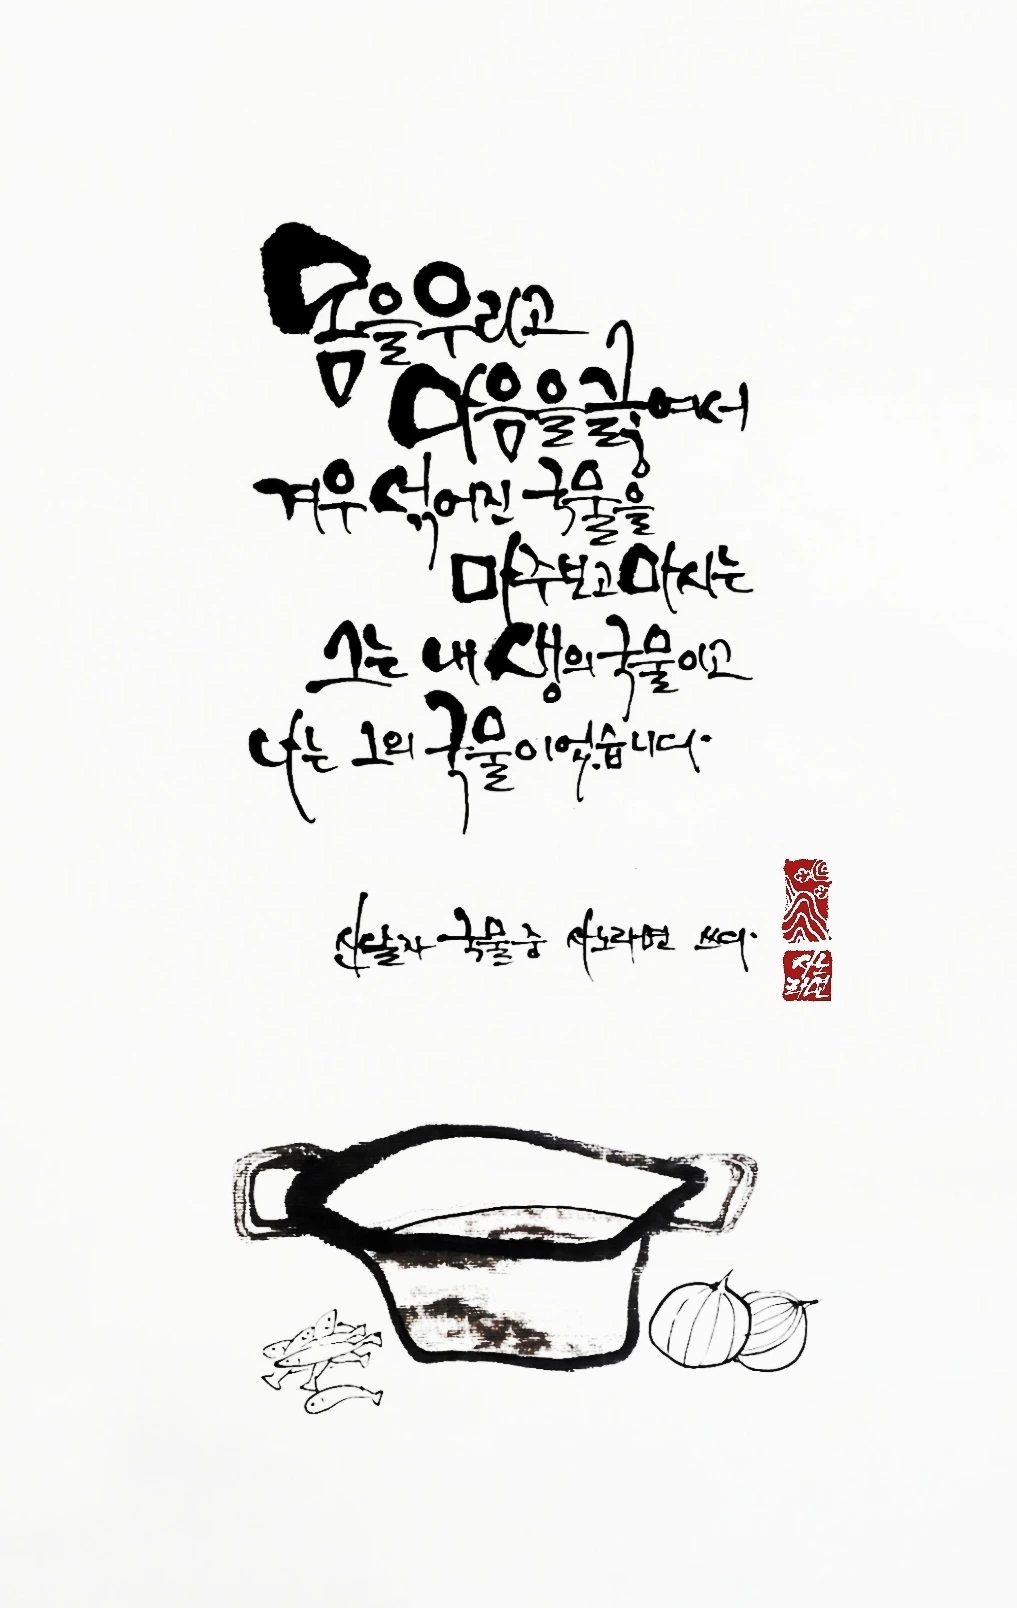 몸을 우리고
마음을 긁여서
겨우 섞어진 국물을
마주보고 마시는
그는 내 생의 국물이고
나는 그의 국물이었습니다.
신달자 국물 중 사노라면 쓰다.
사노
라면